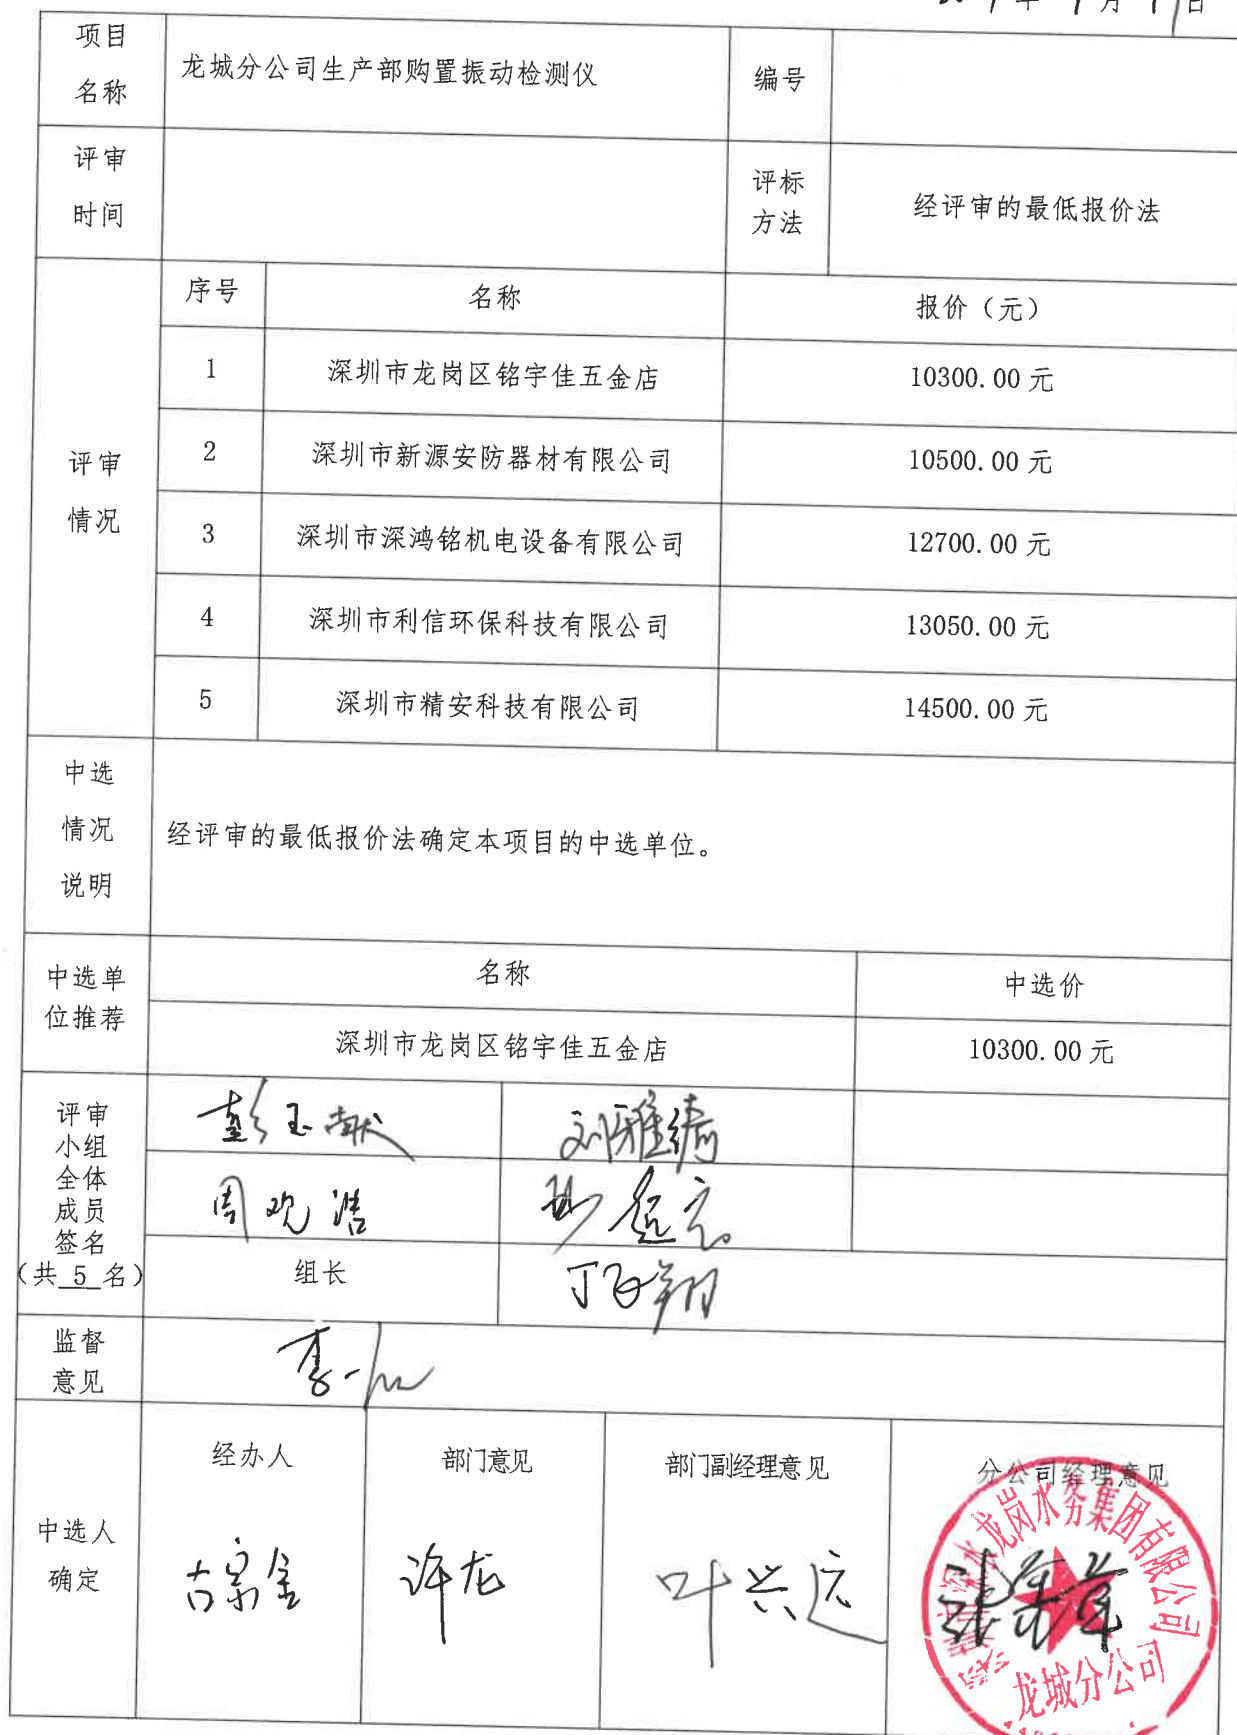 年 月 日
项目
名称
龙城分公司生产部购置振动检测仪
编号
评审
时间
评标
方法
经评审的最低报价法
评审
情况
序号 名称 报价（元）
1 深圳市龙岗区铭宇佳五金店 10300.00 元
2 深圳市新源安防器材有限公司 10500.00 元
3 深圳市深鸿铭机电设备有限公司 12700.00 元
4 深圳市利信环保科技有限公司 13050.00 元
5 深圳市精安科技有限公司 14500.00 元
中选
情况
说明
经评审的最低报价法确定本项目的中选单位。
中选单
位推荐
名称 中选价
深圳市龙岗区铭宇佳五金店 10300.00 元
评审
小组
全体
成员
签名
（共 5 名）
彭玉献 刘雅绮
周观浩
组长
监督
意见
中选人
确定
经办人 部门意见 部门副经理意见 分公司经理意见
许龙 叶兴远
龙岗水务集团有限公司
龙城分公司